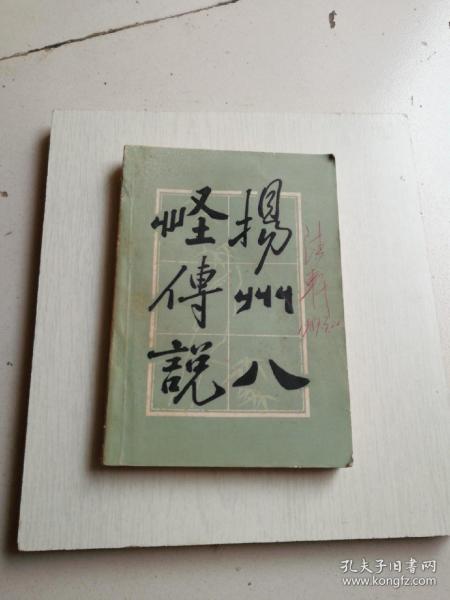 揚州八
怪傳説
孔夫子旧书网
www.kongfz.com